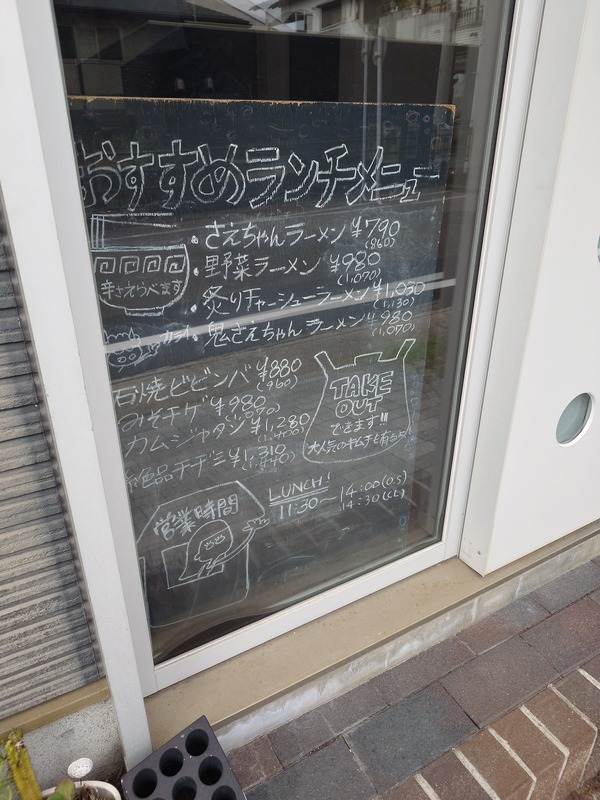 おすすめランチメニュー
・さえちゃんラーメン ¥790
(860)
・野菜ラーメン ¥980
(1,070)
・炙りチャーシューラーメン ¥1,030
(1,130)
・鬼さえちゃんラーメン 〃 980
(1,070)
辛さえらべます
カラ!
石焼ビビンバ ¥880
(960)
みそチゲ ¥980
(1,070)
カムジャタン ¥1,280
(1,400)
絶品チヂミ ¥1,310
(1,440)
TAKE
OUT
できます!!
大人気のキムチも有るヨ
営業時間
LUNCH!
11:30〜14:00(O.S)
14:30(CL)